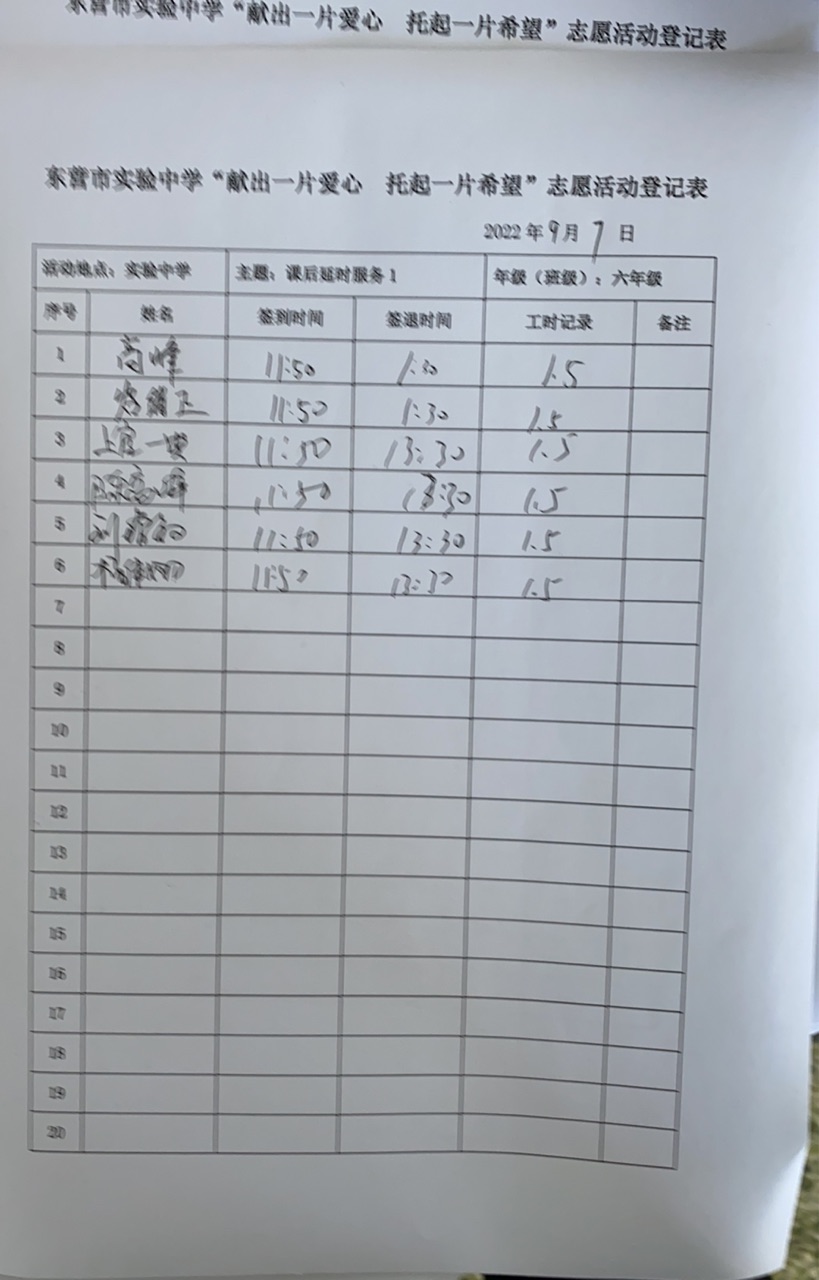 东营市实验中学“献出一片爱心 托起一片希望”志愿活动登记表
东营市实验中学“献出一片爱心 托起一片希望”志愿活动登记表
2022年9月7日
活动地点：实验中学 主题：课后延时服务1 年级（班级）：六年级
序号 姓名 签到时间 签退时间 工时记录 备注
1 高峰 11:50 1:30 1.5
2 11:50 1:30 1.5
3 上官一 11:50 13:30 1.5
4 陈高峰 11:50 13:30 1.5
5 刘 11:50 13:30 1.5
6 11:50 13:30 1.5
7
8
9
10
11
12
13
14
15
16
17
18
19
20